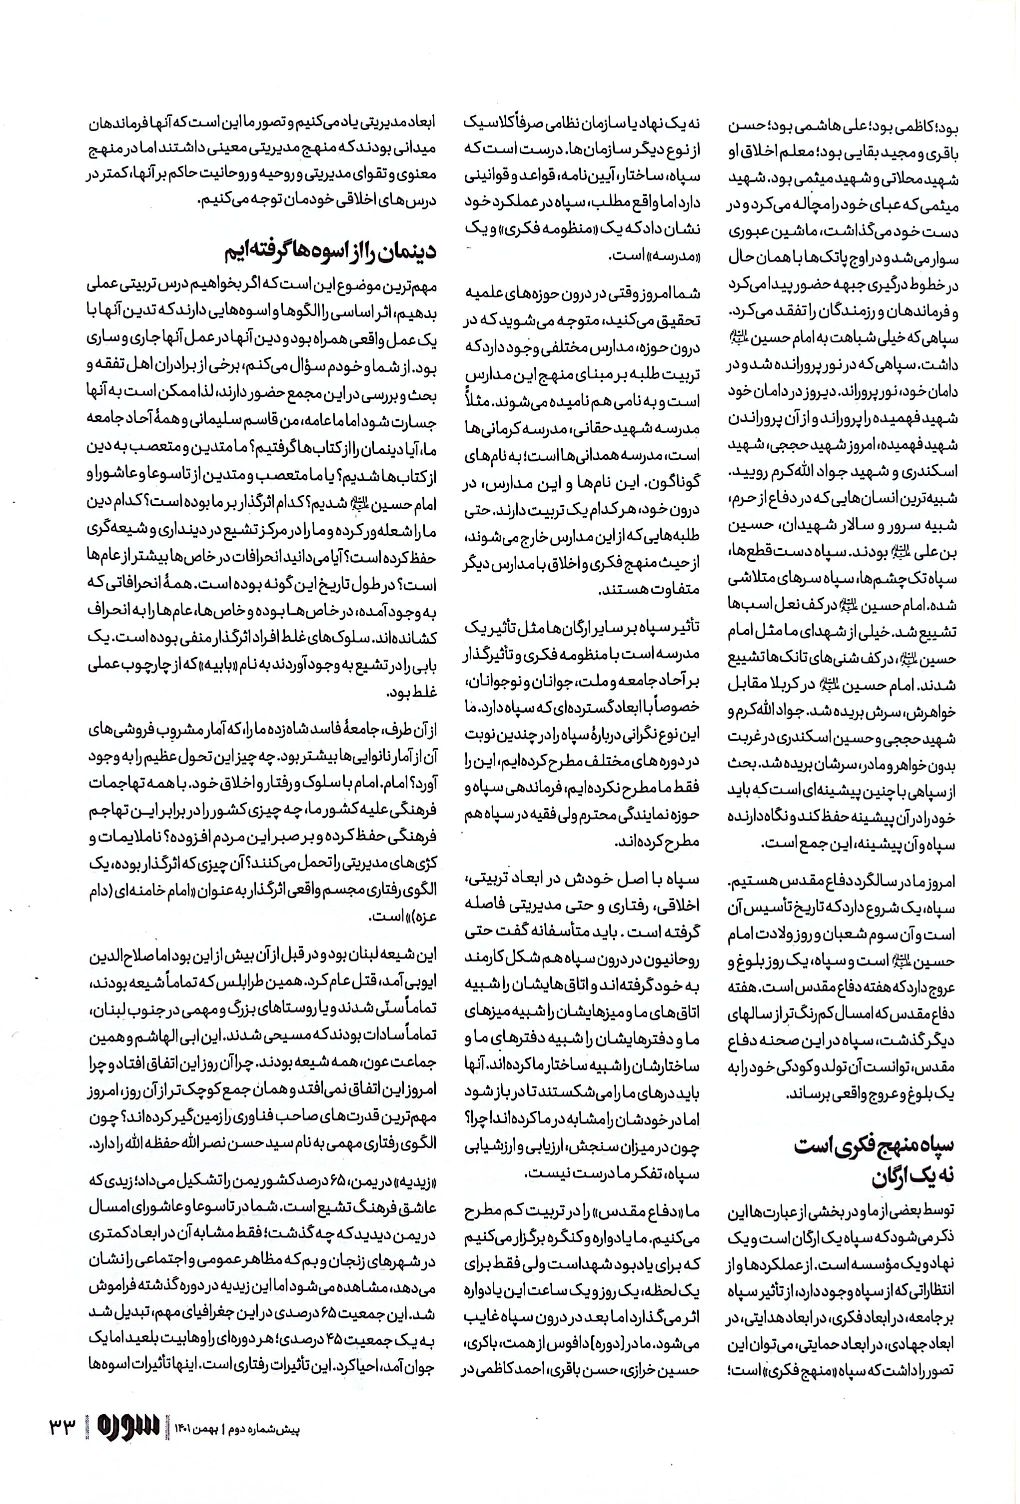 بود؛ کاظمی بود؛ علی هاشمی بود؛ حسن
باقری و مجید بقایی بود؛ معلم اخلاق او
شهید محلاتی و شهید میثمی بود. شهید
میثمی که عبای خود را مچاله می‌کرد و در
دست خود می‌گذاشت، ماشین عبوری
سوار می‌شد و در اوج پاتک‌ها با همان حال
در خطوط درگیری جبهه حضور پیدا می‌کرد
و فرماندهان و رزمندگان را تفقد می‌کرد.
سپاهی که خیلی شباهت به امام حسین ﷷ
داشت. سپاهی که در نور پرورانده شد و در
دامان خود، نور پروراند. دیروز در دامان خود
شهید فهمیده را پروراند و از آن پروراندن
شهید فهمیده، امروز شهید حججی، شهید
اسکندری و شهید جواد الله‌کرم رویید.
شبیه‌ترین انسان‌هایی که در دفاع از حرم،
شبیه سرور و سالار شهیدان، حسین
بن علی ﷷ بودند. سپاه دست قطع‌ها،
سپاه تک‌چشم‌ها، سپاه سرهای متلاشی
شده. امام حسین ﷷ در کف نعل اسب‌ها
تشییع شد. خیلی از شهدای ما مثل امام
حسین ﷷ، در کف شنی‌های تانک‌ها تشییع
شدند. امام حسین ﷷ در کربلا مقابل
خواهرش، سرش بریده شد. جواد الله‌کرم و
شهید حججی و حسین اسکندری در غربت
بدون خواهر و مادر، سرشان بریده شد. بحث
از سپاهی با چنین پیشینه‌ای است که باید
خود را در آن پیشینه حفظ کند و نگاه دارنده
سپاه و آن پیشینه، این جمع است.
امروز ما در سالگرد دفاع مقدس هستیم.
سپاه، یک شروع دارد که تاریخ تأسیس آن
است و آن سوم شعبان و روز ولادت امام
حسین ﷷ است و سپاه، یک روز بلوغ و
عروج دارد که هفته دفاع مقدس است. هفته
دفاع مقدس که امسال کم‌رنگ‌تر از سالهای
دیگر گذشت، سپاه در این صحنه دفاع
مقدس، توانست آن تولد و کودکی خود را به
یک بلوغ و عروج واقعی برساند.
سپاه منهج فکری است
نه یک ارگان
توسط بعضی از ما و در بخشی از عبارت‌ها این
ذکر می‌شود که سپاه یک ارگان است و یک
نهاد و یک مؤسسه است. از عملکردها و از
انتظاراتی که از سپاه وجود دارد، از تأثیر سپاه
بر جامعه، در ابعاد فکری، در ابعاد هدایتی، در
ابعاد جهادی، در ابعاد حمایتی، می‌توان این
تصور را داشت که سپاه «منهج فکری» است؛
نه یک نهاد یا سازمان نظامی صرفاً کلاسیک
از نوع دیگر سازمان‌ها. درست است که
سپاه، ساختار، آیین‌نامه، قواعد و قوانینی
دارد اما واقع مطلب، سپاه در عملکرد خود
نشان داد که یک «منظومه فکری» و یک
«مدرسه» است.
شما امروز وقتی در درون حوزه‌های علمیه
تحقیق می‌کنید، متوجه می‌شوید که در
درون حوزه، مدارس مختلفی وجود دارد که
تربیت طلبه بر مبنای منهج این مدارس
است و به نامی هم نامیده می‌شوند. مثلاً
مدرسه شهید حقانی، مدرسه کرمانی‌ها
است، مدرسه همدانی‌ها است؛ به نام‌های
گوناگون. این نام‌ها و این مدارس، در
درون خود، هر کدام یک تربیت دارند. حتی
طلبه‌هایی که از این مدارس خارج می‌شوند،
از حیث منهج فکری و اخلاق با مدارس دیگر
متفاوت هستند.
تأثیر سپاه بر سایر ارگان‌ها مثل تأثیر یک
مدرسه است با منظومه فکری و تأثیرگذار
بر آحاد جامعه و ملت، جوانان و نوجوانان،
خصوصاً با ابعاد گسترده‌ای که سپاه دارد. ما
این نوع نگرانی دربارهٔ سپاه را در چندین نوبت
در دوره های مختلف مطرح کرده‌ایم، این را
فقط ما مطرح نکرده‌ایم، فرماندهی سپاه و
حوزه نمایندگی محترم ولی فقیه در سپاه هم
مطرح کرده‌اند.
سپاه با اصل خودش در ابعاد تربیتی،
اخلاقی، رفتاری و حتی مدیریتی فاصله
گرفته است . باید متأسفانه گفت حتی
روحانیون در درون سپاه هم شکل کارمند
به خود گرفته‌اند و اتاق‌هایشان را شبیه
اتاق‌های ما و میزهایشان را شبیه میزهای
ما و دفترهایشان را شبیه دفترهای ما و
ساختارشان را شبیه ساختار ما کرده‌اند. آنها
باید درهای ما را می‌شکستند تا در باز شود
اما در خودشان را مشابه در ما کرده‌اند! چرا؟
چون در میزان سنجش، ارزیابی و ارزشیابی
سپاه، تفکر ما درست نیست.
ما «دفاع مقدس» را در تربیت کم مطرح
می‌کنیم. ما یادواره و کنگره برگزار می‌کنیم
که برای یادبود شهداست ولی فقط برای
یک لحظه، یک روز و یک ساعت این یادواره
اثر می‌گذارد اما بعد در درون سپاه غایب
می‌شود. ما در [دوره] دافوس از همت، باکری،
حسین خرازی، حسن باقری، احمد کاظمی در
ابعاد مدیریتی یاد می‌کنیم و تصور ما این است که آنها فرماندهان
میدانی بودند که منهج مدیریتی معینی داشتند اما در منهج
معنوی و تقوای مدیریتی و روحیه و روحانیت حاکم بر آنها، کمتر در
درس‌های اخلاقی خودمان توجه می‌کنیم.
دینمان را از اسوه‌ها گرفته‌ایم
مهم‌ترین موضوع این است که اگر بخواهیم درس تربیتی عملی
بدهیم، اثر اساسی را الگوها و اسوه‌هایی دارند که تدین آنها با
یک عمل واقعی همراه بود و دین آنها در عمل آنها جاری و ساری
بود. از شما و خودم سؤال می‌کنم، برخی از برادران اهل تفقه و
بحث و بررسی در این مجمع حضور دارند، لذا ممکن است به آنها
جسارت شود اما ما عامه، من قاسم سلیمانی و همهٔ آحاد جامعه
ما، آیا دینمان را از کتاب‌ها گرفتیم؟ ما متدین و متعصب به دین
از کتاب‌ها شدیم؟ یا ما متعصب و متدین از تاسوعا و عاشورا و
امام حسین ﷷ شدیم؟ کدام اثرگذار بر ما بوده است؟ کدام دین
ما را شعله‌ور کرده و ما را در مرکز تشیع در دینداری و شیعه‌گری
حفظ کرده است؟ آیا می‌دانید انحرافات در خاص‌ها بیشتر از عام‌ها
است؟ در طول تاریخ این گونه بوده است. همهٔ انحرافاتی که
به وجود آمده، در خاص‌ها بوده و خاص‌ها، عام‌ها را به انحراف
کشانده‌اند. سلوک‌های غلط افراد اثرگذار منفی بوده است. یک
بابی را در تشیع به وجود آوردند به نام «بابیه» که از چارچوب عملی
غلط بود.
از آن طرف، جامعهٔ فاسد شاه‌زده ما را، که آمار مشروب فروشی‌های
آن از آمار نانوایی‌ها بیشتر بود. چه چیز این تحول عظیم را به وجود
آورد؟ امام. امام با سلوک و رفتار و اخلاق خود. با همه تهاجمات
فرهنگی علیه کشور ما، چه چیزی کشور را در برابر این تهاجم
فرهنگی حفظ کرده و بر صبر این مردم افزوده؟ ناملایمات و
کژی‌های مدیریتی را تحمل می‌کنند؟ آن چیزی که اثرگذار بوده، یک
الگوی رفتاری مجسم واقعی اثرگذار به عنوان «امام خامنه‌ای (دام
عزه)» است.
این شیعه لبنان بود و در قبل از آن بیش از این بود اما صلاح‌الدین
ایوبی آمد، قتل عام کرد. همین طرابلس که تماماً شیعه بودند،
تماماً سنّی شدند و یا روستاهای بزرگ و مهمی در جنوب لبنان،
تماماً سادات بودند که مسیحی شدند. این ابی الهاشم و همین
جماعت عون، همه شیعه بودند. چرا آن روز این اتفاق افتاد و چرا
امروز این اتفاق نمی‌افتد و همان جمع کوچک‌تر از آن روز، امروز
مهم‌ترین قدرت‌های صاحب فناوری را زمین‌گیر کرده‌اند؟ چون
الگوی رفتاری مهمی به نام سید حسن نصر الله حفظه الله را دارد.
«زیدیه» در یمن، ۶۵ درصد کشور یمن را تشکیل می‌داد؛ زیدی که
عاشق فرهنگ تشیع است. شما در تاسوعا و عاشورای امسال
در یمن دیدید که چه گذشت؛ فقط مشابه آن در ابعاد کمتری
در شهرهای زنجان و بم که مظاهر عمومی و اجتماعی را نشان
می‌دهد، مشاهده می‌شود اما این زیدیه در دوره گذشته فراموش
شد. این جمعیت ۶۵ درصدی در این جغرافیای مهم، تبدیل شد
به یک جمعیت ۴۵ درصدی؛ هر دوره‌ای را وهابیت بلعید اما یک
جوان آمد، احیا کرد. این تأثیرات رفتاری است. اینها تأثیرات اسوه‌ها
پیش‌شماره دوم | بهمن ۱۴۰۱ سوره ۳۳